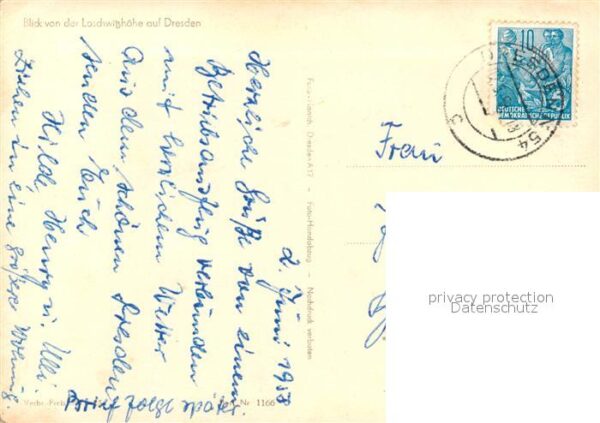 Blick von der Loschwitzhöhe auf Dresden
2. Juni 1958
Herzliche Grüße von einem
Betriebsausflug verbunden
mit herrlichem Wetter
aus dem schönen Dresden
senden Euch
Hilde, Henry u. Ulli.
Ziehen in eine größere Wohnung.
Brief folgt später.
Frau
10
DEUTSCHE
DEMOKRATISCHE REPUBLIK
DRESDEN
Dresden A 17 – Foto-Handabzug – Nachdruck verboten
Nr. 1166
privacy protection
Datenschutz